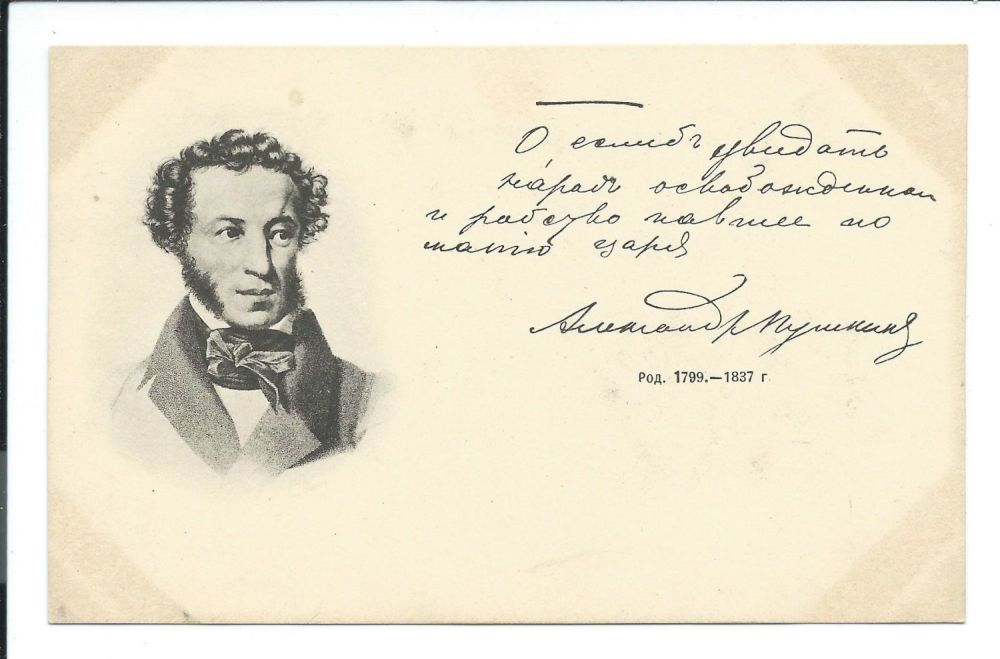 О, еслибъ увидать
народъ освобожденный
и рабство павшее по
манію царя
Александр Пушкинъ
Род. 1799.—1837 г